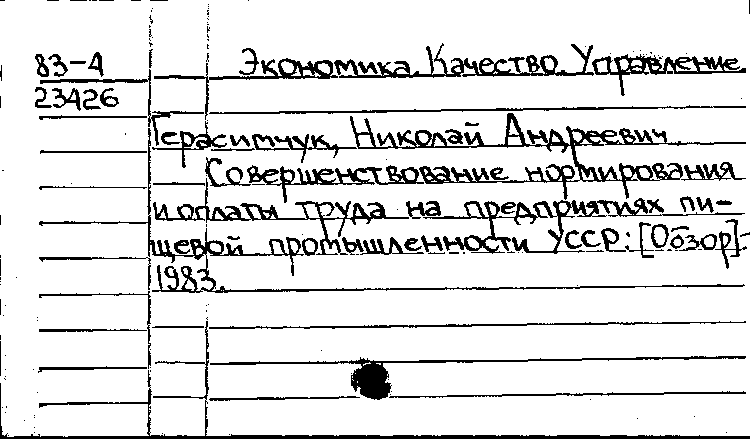 83-4 Экономика. Качество. Управление.
23426
Герасимчук, Николай Андреевич.
Совершенствование нормирования
и оплаты труда на предприятиях пи-
щевой промышленности УССР: [Обзор]-
1983.